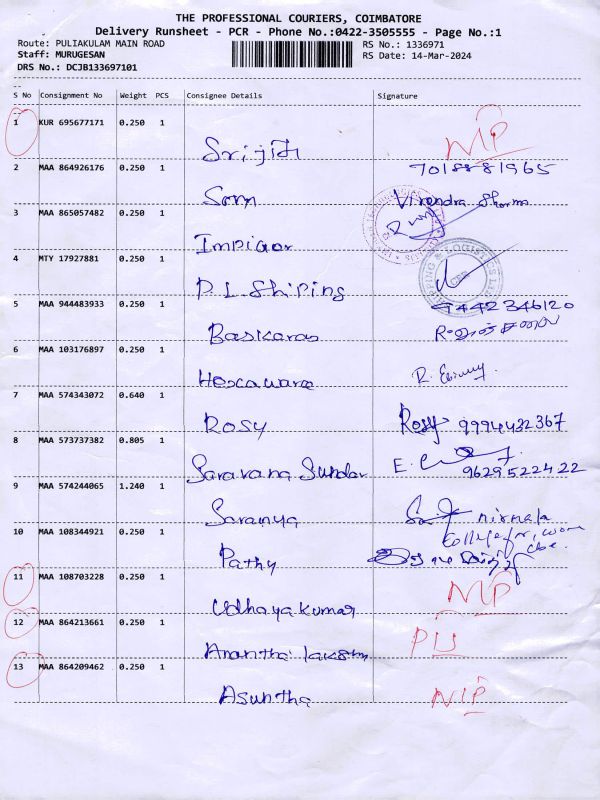 THE PROFESSIONAL COURIERS, COIMBATORE
Delivery Runsheet - PCR - Phone No.:0422-3505555 - Page No.:1
Route: PULIAKULAM MAIN ROAD RS No.: 1336971
Staff: MURUGESAN RS Date: 14-Mar-2024
DRS No.: DCJB133697101
S No Consignment No Weight PCS Consignee Details Signature
1 KUR 695677171 0.250 1 Srijith
2 MAA 864926176 0.250 1 7018881965
Virendra Sharma
3 MAA 865057482 0.250 1
4 MTY 17927881 0.250 1 P.L Shiping
5 MAA 944483933 0.250 1 Baskaras 9442346120
6 MAA 103176897 0.250 1 Hexaware
7 MAA 574343072 0.640 1 Rosy Rosy 9994432367
8 MAA 573737382 0.805 1 Saravana Sundar 9629522422
9 MAA 574244065 1.240 1 Saranya nirmala
10 MAA 108344921 0.250 1 Pathy cbe.
11 MAA 108703228 0.250 1 Udhayakumar
12 MAA 864213661 0.250 1
13 MAA 864209462 0.250 1 Asuntha